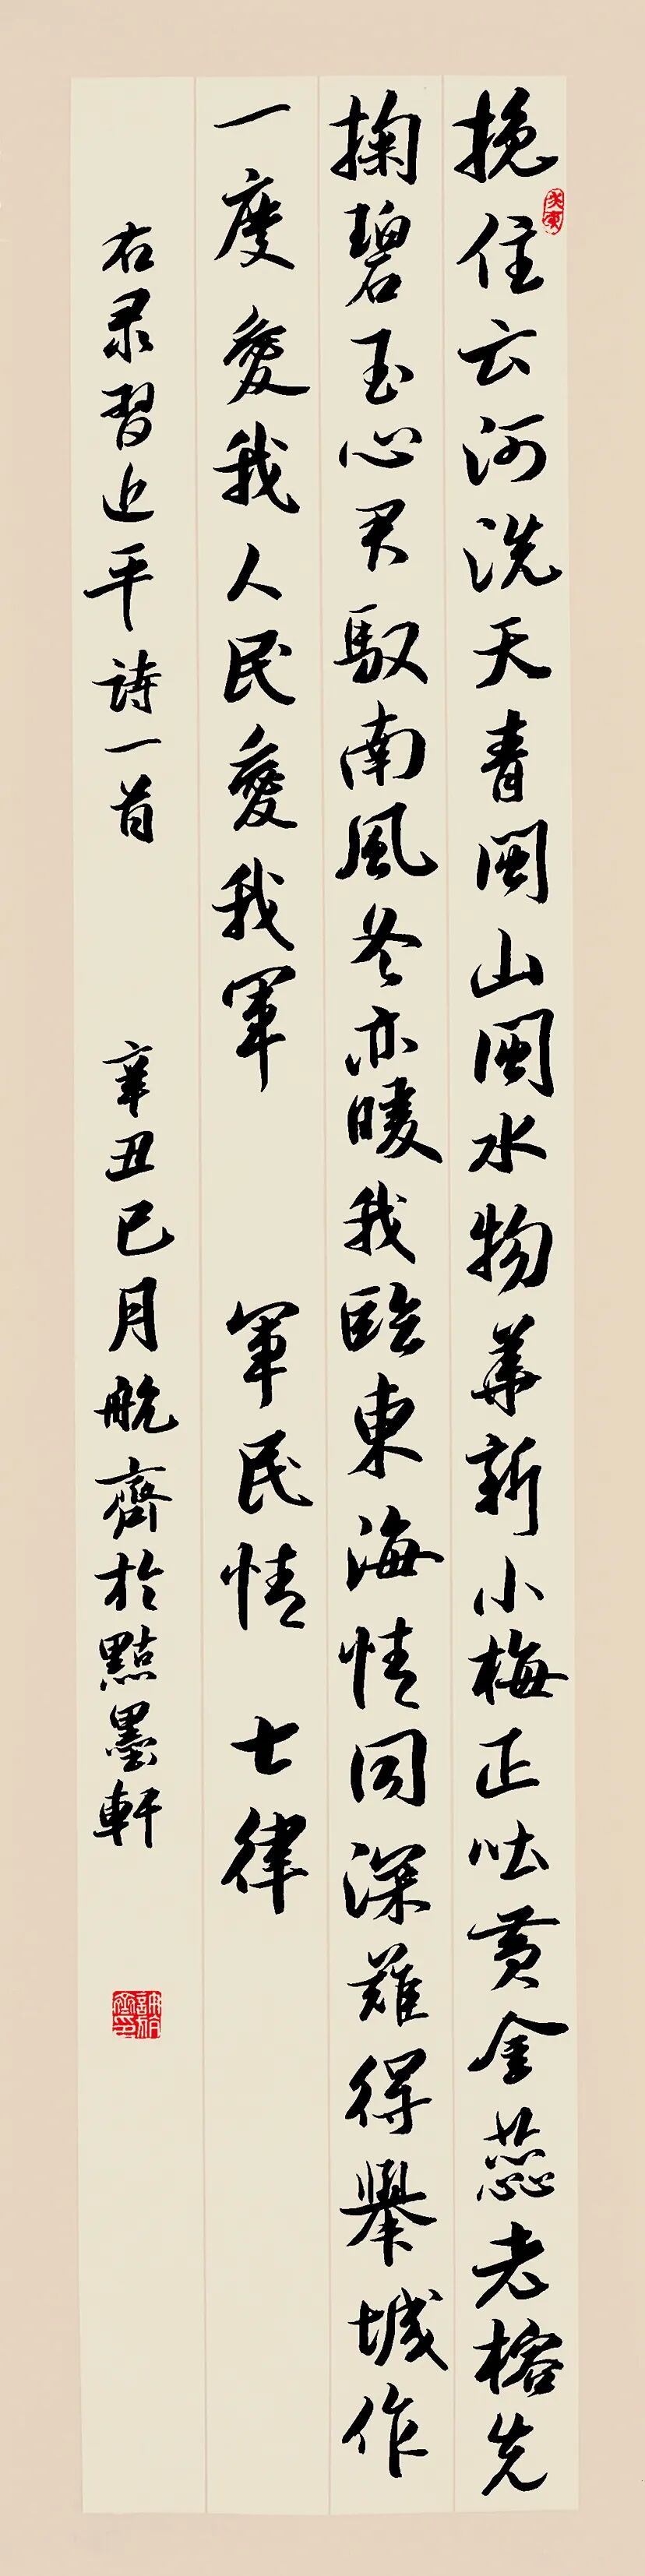 挽住云河洗天青閩山閩水物華新小梅正吐黄金蕊老榕先
掬碧玉心君馭南風冬亦暖我臨東海情同深難得舉城作
一度愛我人民愛我軍 軍民情 七律
右录習近平詩一首 辛丑巳月航齊於點墨軒